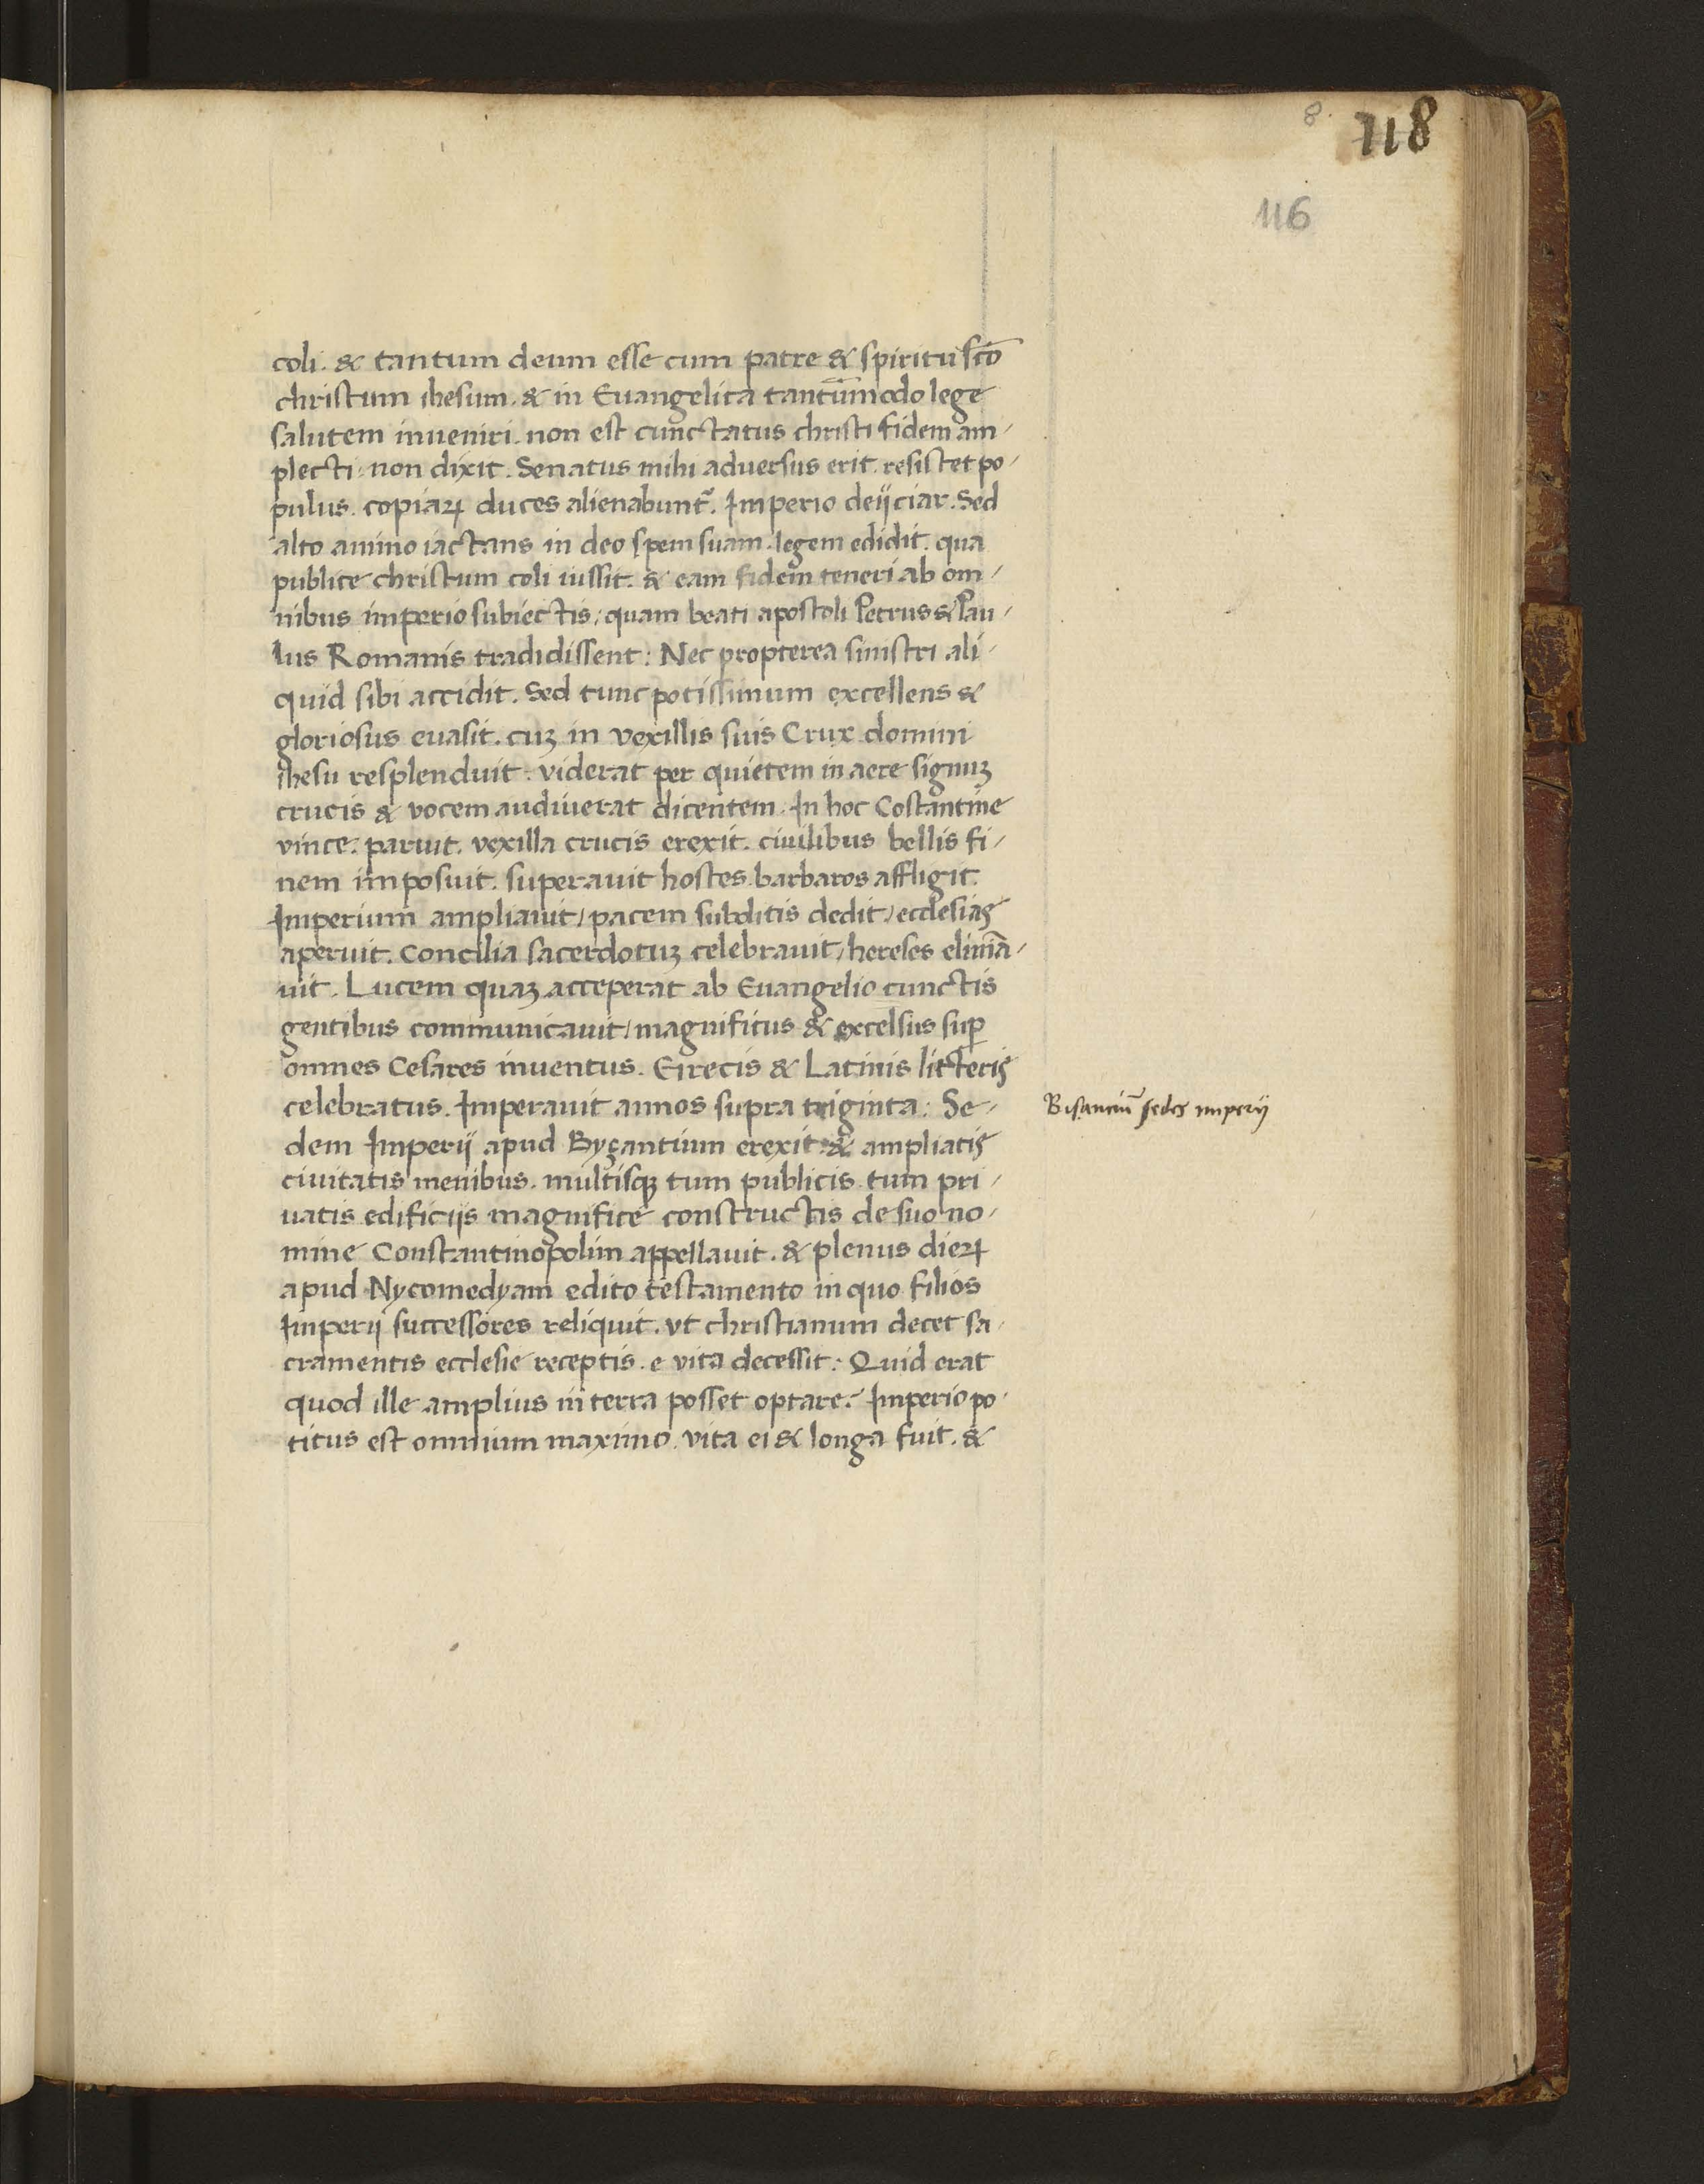 8.
118
116
coli. & tantum deum esse cum patre & spiritu scō
christum ihesum. & in Euangelica tantūmodo lege
salutem inueniri. non est cunctatus christi fidem am-
plecti: non dixit. Senatus mihi aduersus erit. resistet po-
pulus. copiaꝝ duces alienabunt᷑. Imperio deijciar. Sed
alto animo iactans in deo spem suam. legem edidit. qua
publice christum coli iussit. & eam fidem teneri ab om-
nibus imperio subiectis, quam beati apostoli Petrus & Pau-
lus Romanis tradidissent: Nec propterea sinistri ali-
quid sibi accidit. Sed tunc potissimum excellens &
gloriosus euasit. cuꝫ in vexillis suis Crux domini
ihesu resplenduit: viderat per quietem in aere signuꝫ
crucis & vocem audiuerat dicentem. In hoc Costantine
vince. paruit. vexilla crucis erexit. ciuilibus bellis fi-
nem imposuit. superauit hostes. barbaros affligit.
Imperium ampliauit/ pacem subditis dedit/ ecclesias
aperuit. Concilia sacerdotuꝫ celebrauit/ hereses eliminā-
uit. Lucem quaꝫ acceperat ab Euangelio cunctis
gentibus communicauit/ magnificus & excelsus suꝑ
omnes Cesares inuentus. Grecis & Latinis litteris
celebratus. Imperauit annos supra triginta: Se-
dem Imperij apud Byzantium erexit: & ampliatis
ciuitatis menibus. multisqꝫ tum publicis tum pri-
uatis edificijs magnifice constructis de suo no-
mine Constantinopolim appellauit. & plenus dieꝝ
apud Nycomedyam edito testamento in quo filios
Imperij successores reliquit. vt christianum decet sa-
cramentis ecclesie receptis. e vita decessit: Quid erat
quod ille amplius in terra posset optare? Imperio po-
titus est omnium maximo. vita ei & longa fuit. &
Bisanciū sedes imperij